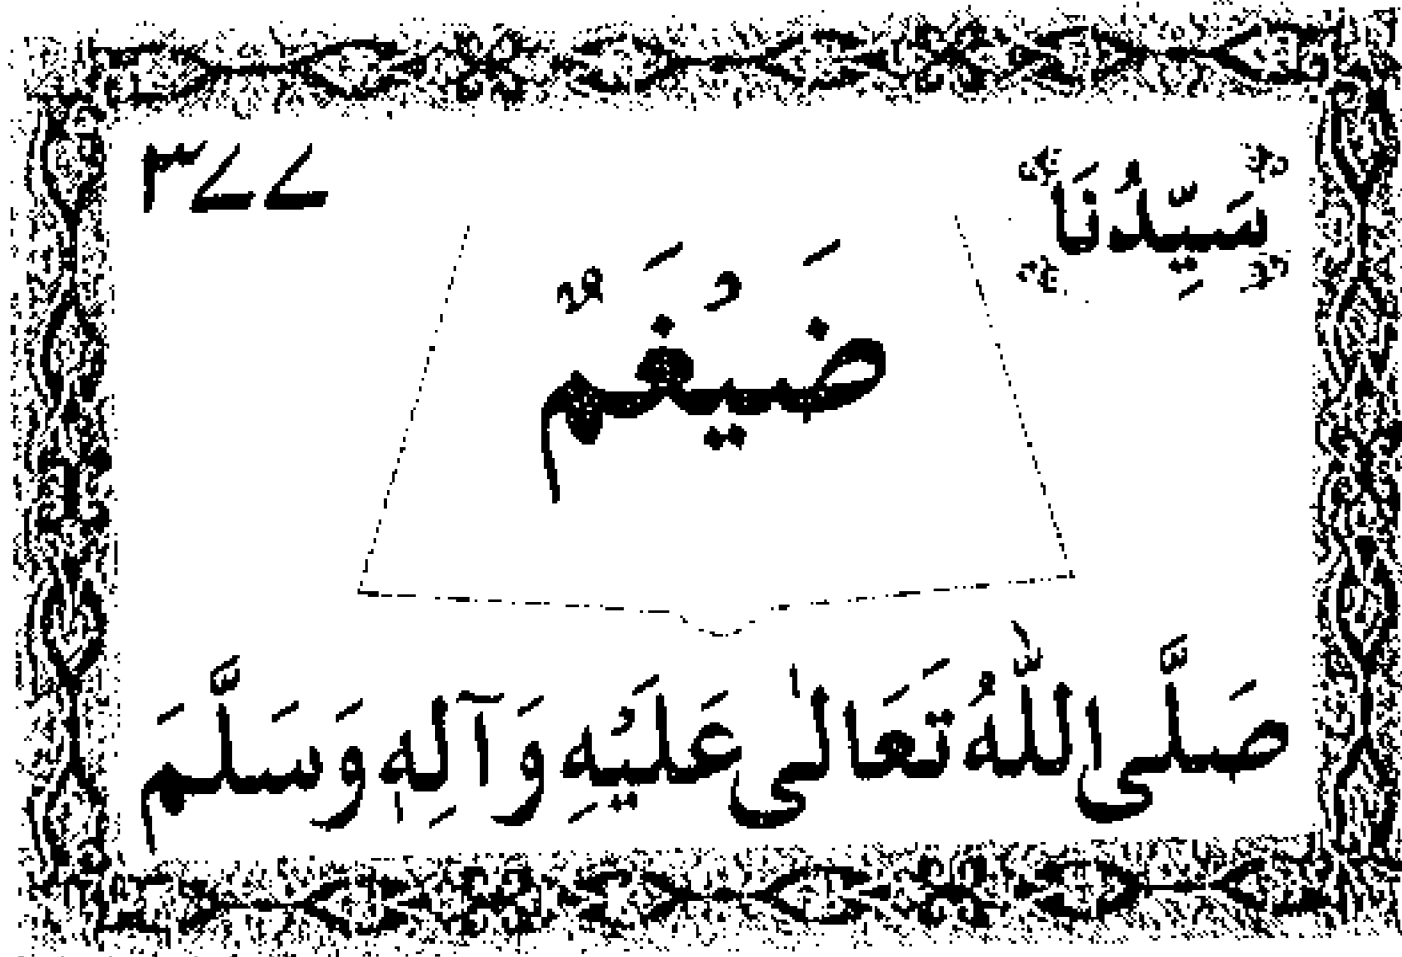 سَيِّدُنَا ۳۷۷
ضَيْغَمٌ
صَلَّى اللّٰهُ تَعَالٰى عَلَيْهِ وَآلِهٖ وَسَلَّمَ